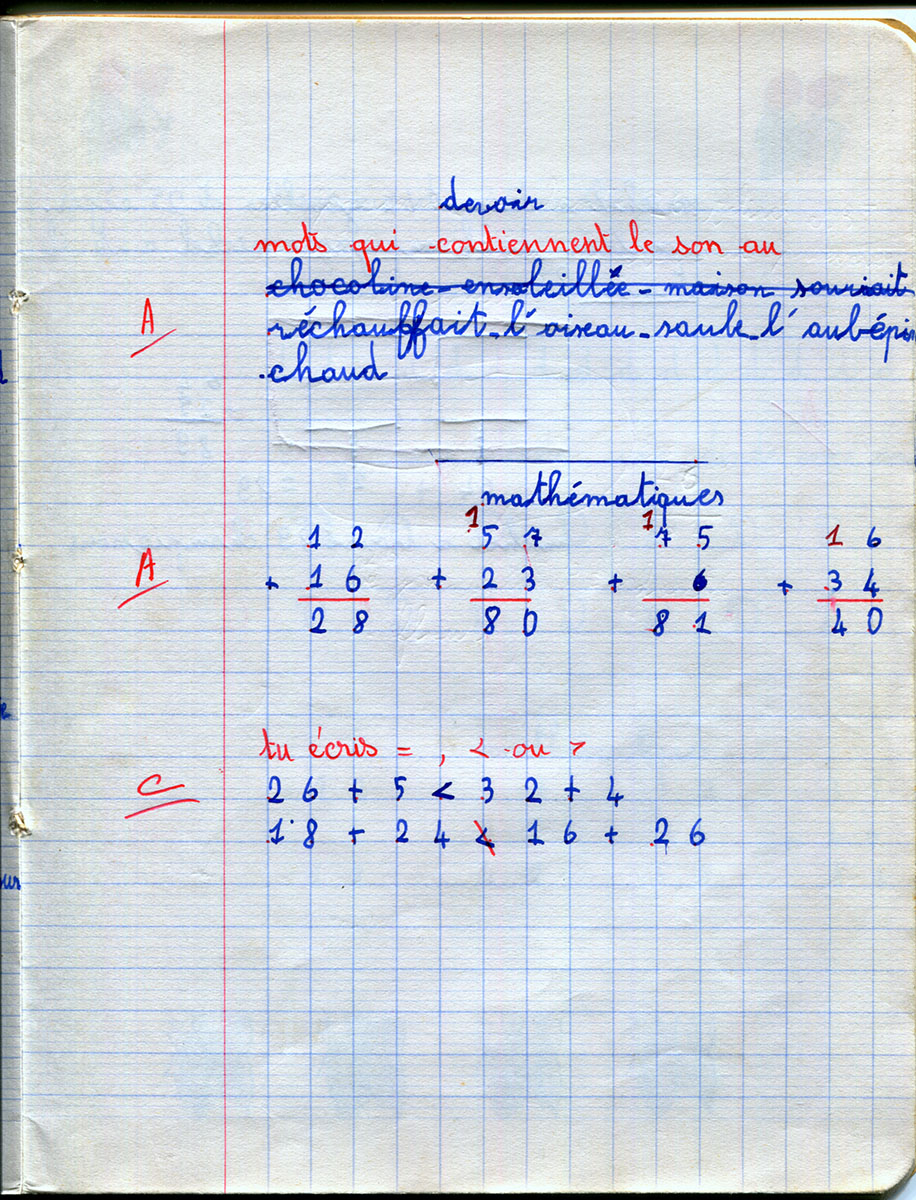 devoir
mots qui contiennent le son au
chocoline - ensoleillée - maison souriait
A
réchauffait - l'oiseau - saule - l'aubépin
chaud
mathématiques
1 1
1 2 5 7 7 5 1 6
A
+ 1 6 + 2 3 + 6 + 3 4
2 8 8 0 8 1 4 0
tu écris = , < ou >
C
2 6 + 5 < 3 2 + 4
1 8 + 2 4 < 1 6 + 2 6